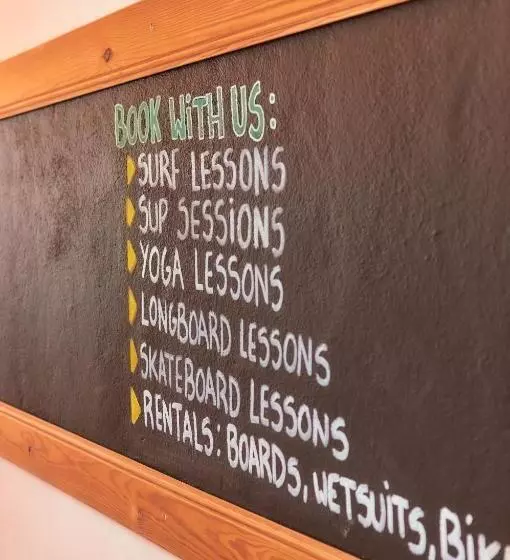 BOOK WITH US:
SURF LESSONS
SUP SESSIONS
YOGA LESSONS
LONGBOARD LESSONS
SKATEBOARD LESSONS
RENTALS: BOARDS, WETSUITS,